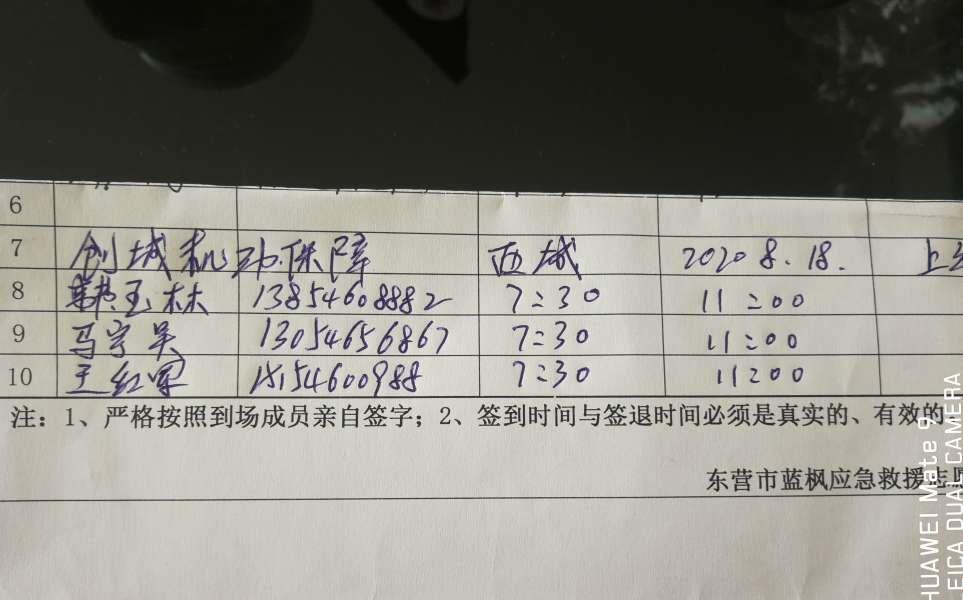 6
7 创城机动保障 西城 2020 8.18. 上
8 韩玉林 13854608882 7:30 11:00
9 马宇昊 13054656867 7:30 11:00
10 王红军 15154600988 7:30 11:00
注：1、严格按照到场成员亲自签字；2、签到时间与签退时间必须是真实的、有效的
东营市蓝枫应急救援志愿
HUAWEI Mate 9
LEICA DUAL CAMERA